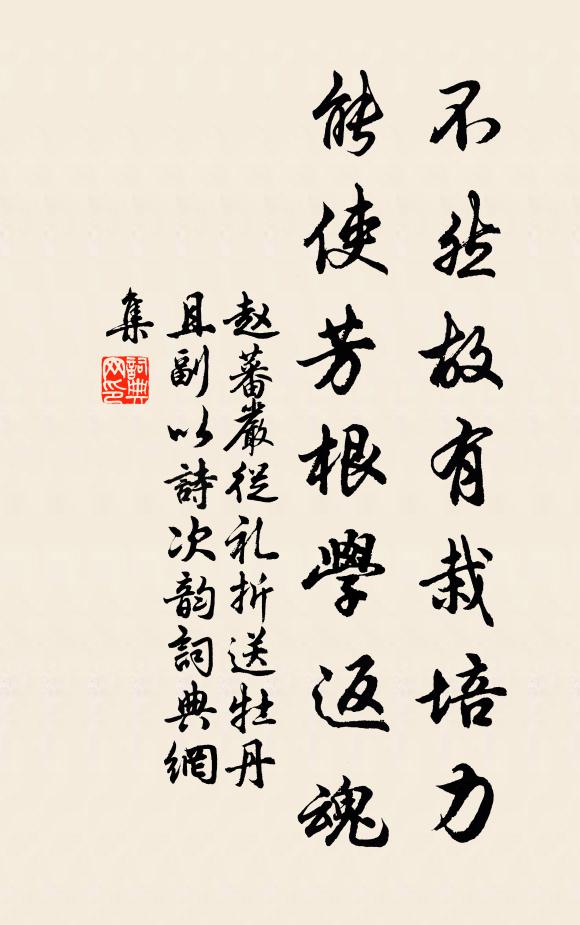 不然故有栽培力
能使芳根學返魂
赵蕃嚴從礼折送牡丹
且副以詩次韵詞典網
集
詞典网印